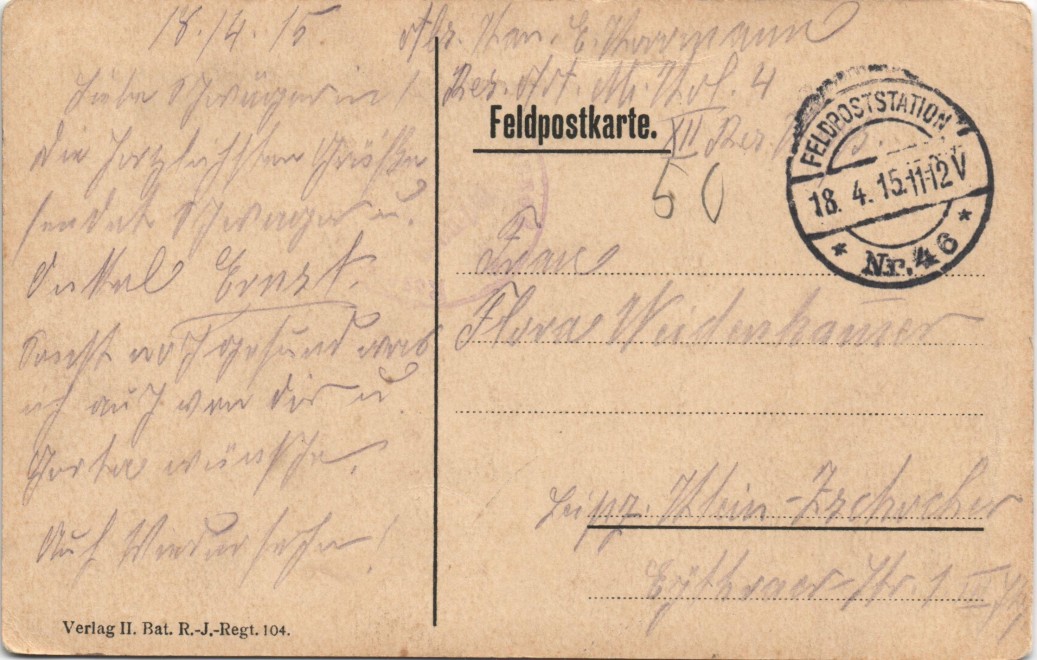 18./4. 15.
Liebe Schwägerin!
Die herzlichsten Grüße
sendet Schwager u.
Onkel Ernst.
noch gesund was
ich auch von dir u.
wünsche.
Auf Wiedersehn!
Verlag II. Bat. R.-J.-Regt. 104.
Abs. Kan. E.
Res. Art. M. Kol. 4
XII Res.
Feldpostkarte.
50
FELDPOSTSTATION
18. 4. 15. 11-12 V
* Nr. 46 *
Frau
Flora Weidenhamer
Leipz. Klein-Zschocher
Eythraer Str. 1 II